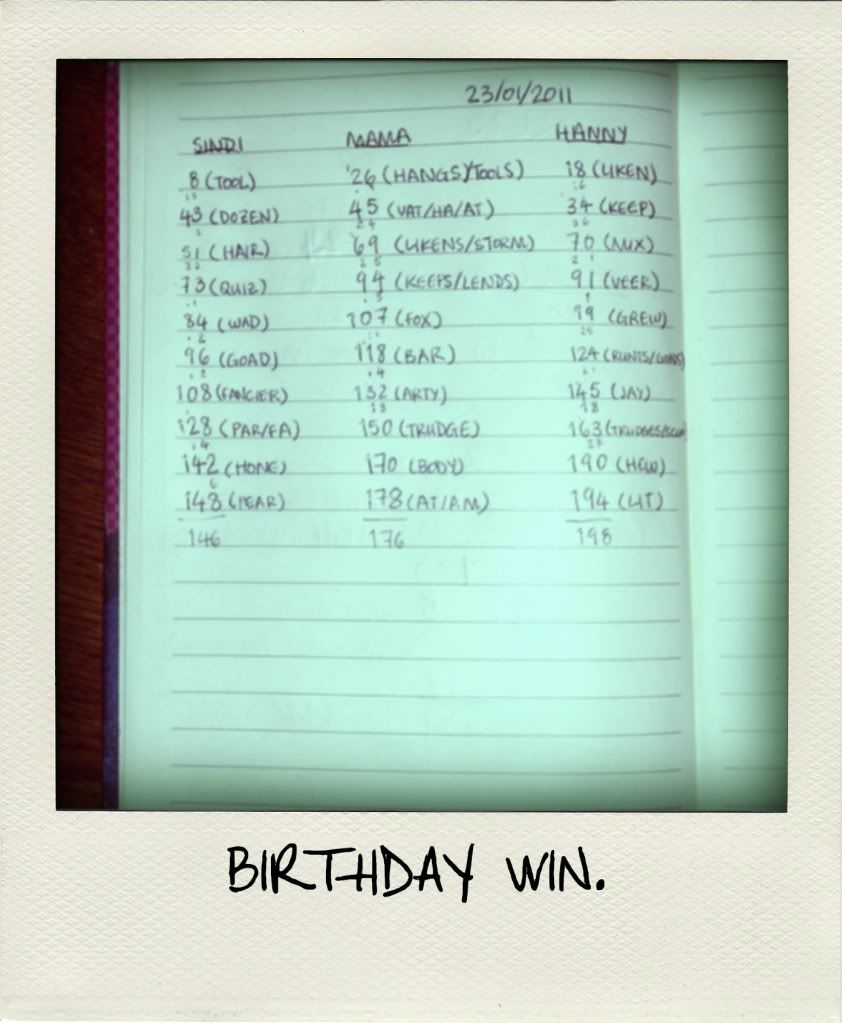 23/01/2011
SINDI MAMA HANNY
8 (TOOL) 26 (HANGS/TOOLS) 18 (LIKEN)
43 (DOZEN) 45 (VAT/HA/AT) 34 (KEEP)
51 (HAIR) 69 (LIKENS/STORM) 70 (NUX)
73 (QUIZ) 94 (KEEPS/LENDS) 91 (VEER)
84 (WAD) 107 (FOX) 99 (GREW)
96 (GOAD) 118 (BAR) 124 (RUNTS/
108 (FANCIER) 132 (ARTY) 145 (JAY)
128 (PAR/FA) 150 (TRUDGE) 163 (TRUDGES/
142 (HONE) 170 (BODY) 190 (HEW)
148 (PEAR) 178 (AT/AM) 194 (LIT)
146 176 198
BIRTHDAY WIN.